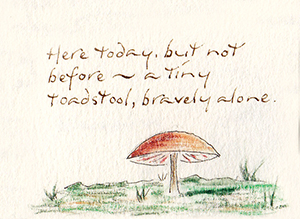 Here today, but not
before ~ a tiny
toadstool, bravely alone.